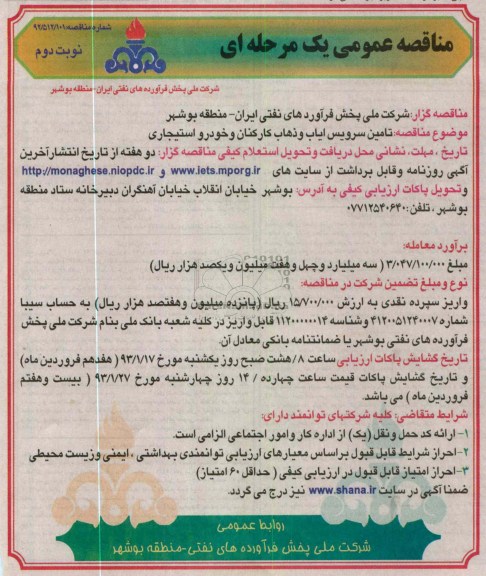 شماره مناقصه:۹۲/۵۱۲/۱۰۱
مناقصه عمومی یک مرحله ای
نوبت دوم
شرکت ملی پخش فرآورده های نفتی ایران-منطقه بوشهر
مناقصه گزار:شرکت ملی پخش فرآورده های نفتی ایران- منطقه بوشهر
موضوع مناقصه:تامین سرویس ایاب وذهاب کارکنان وخودرو استیجاری
تاریخ ، مهلت، نشانی محل دریافت وتحویل استعلام کیفی مناقصه گزار: دو هفته از تاریخ انتشارآخرین
آگهی روزنامه وقابل برداشت از سایت های www.iets.mporg.ir و http://monaghese.niopdc.ir
وتحویل پاکات ارزیابی کیفی به آدرس: بوشهر خیابان انقلاب خیابان آهنگران دبیرخانه ستاد منطقه
بوشهر ، تلفن:۰۷۷۱۲۵۴۰۶۴۰
برآورد معامله:
مبلغ ۳/۰۴۷/۱۰۰/۰۰۰ ( سه میلیارد وچهل وهفت میلیون ویکصد هزار ریال)
نوع ومبلغ تضمین شرکت در مناقصه:
واریز سپرده نقدی به ارزش ۱۵/۷۰۰/۰۰۰ ریال (پانزده میلیون وهفتصد هزار ریال) به حساب سیبا
شماره ۴۱۲۰۰۵۱۲۴۰۰۰۷ وشناسه ۱۱۲۰۰۰۰۰۰۱۴ قابل واریز در کلیه شعبه بانک ملی بنام شرکت ملی پخش
فرآورده های نفتی بوشهر یا ضمانتنامه بانکی معادل آن.
تاریخ گشایش پاکات ارزیابی ساعت ۸/ هشت صبح روز یکشنبه مورخ ۹۳/۱/۱۷ ( هفدهم فروردین ماه)
و تاریخ گشایش پاکات قیمت ساعت چهارده / ۱۴ روز چهارشنبه مورخ ۹۳/۱/۲۷ ( بیست وهفتم
فروردین ماه ) می باشد.
شرایط متقاضی: کلیه شرکتهای توانمند دارای:
۱- ارائه کد حمل ونقل (یک) از اداره کار وامور اجتماعی الزامی است.
۲-احراز شرایط قابل قبول براساس معیارهای ارزیابی توانمندی بهداشتی ، ایمنی وزیست محیطی
۳-احراز امتیاز قابل قبول در ارزیابی کیفی ( حداقل ۶۰ امتیاز)
ضمنا آگهی در سایت www.shana.ir نیز درج می گردد.
روابط عمومی
شرکت ملی پخش فرآورده های نفتی-منطقه بوشهر